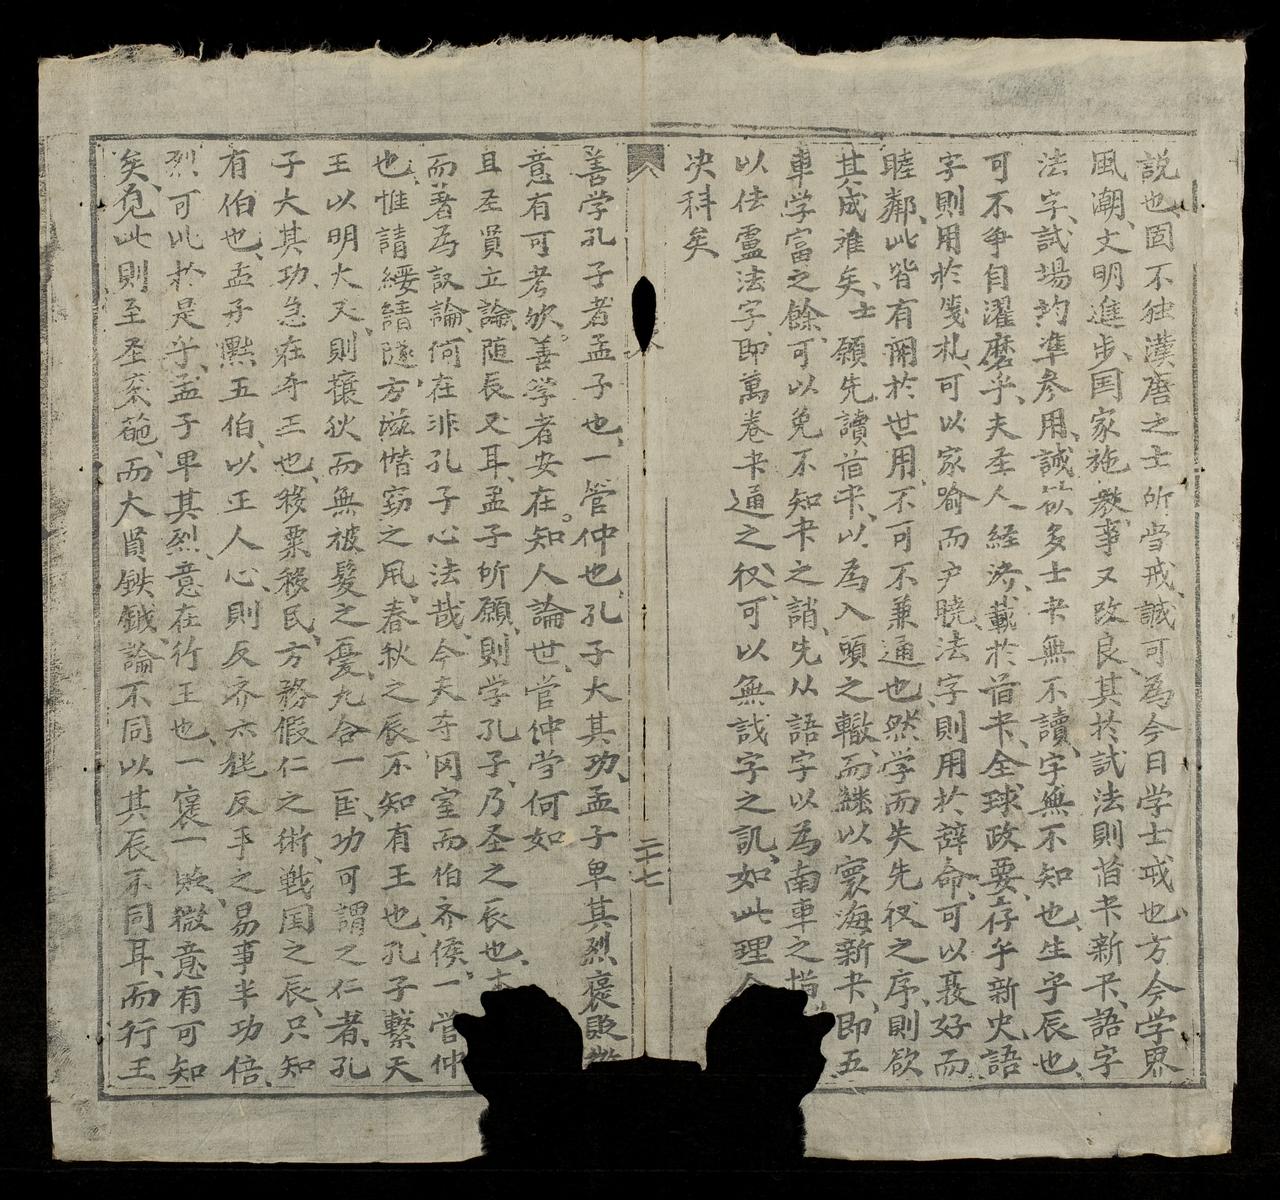 説也、固不独漢唐之士所当戒、誠可為今日学士戒也、方今学界
風潮、文明進步、国家施教、事又改良、其於試法則旧书新书、語字
法字、試場均準参用、誠以多士书無不讀、字無不知也、生乎辰也、
可不争自濯磨乎、夫圣人経済、載於旧书、全球政要、存乎新史、語
字則用於笺札、可以家喻而户曉、法字則用於辞命、可以敦好而
睦鄰、此皆有関於世用、不可不兼通也、然学而失先後之序、則欲
其成难矣、士領先讀旧书、以為入頭之轍、而継以寰海新书、即五
車学富之餘、可以免不知书之誚、先从語字以為南車之指
以佉盧法字、即萬巻书通之後、可以無
字之訊、如此理
决科矣
二十七
善学孔子者孟子也、一管仲也、孔子大其功、孟子卑其烈、褒貶
意有可考欤。善学者安在。知人論世、管仲当何如
且圣贤立論、随辰义耳、孟子所願、則学孔子、乃圣之辰也、
而著為訓論、何在非孔子心法哉、今夫冈室而伯齐侯、一管仲
也、惟請綏請隧、方滋僭窃之風、春秋之辰、不知有王也、孔子繫天
王以明大义、則攘狄而無被髮之憂、九合一匡、功可謂之仁者、孔
子大其功、急在夸王也、移粟移民、方務假仁之術、戦国之辰、只知
有伯也、孟子黜五伯、以正人心、則反齐不能反手之易、事半功倍、
烈可比於是乎、孟子卑其烈、意在行王也、一褒一貶、微意有可知
矣、見此則至圣衮葩、而大贤鈇鉞、論不同以其辰不同耳、而行王